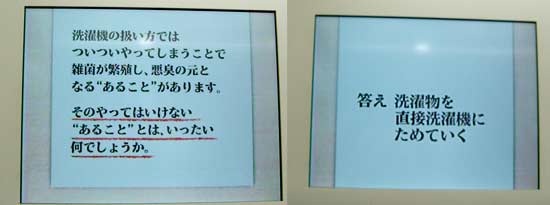 洗濯機の扱い方では
ついついやってしまうことで
雑菌が繁殖し、悪臭の元と
なる“あること”があります。
そのやってはいけない
“あること”とは、いったい
何でしょうか。
答え 洗濯物を
直接洗濯機に
ためていく